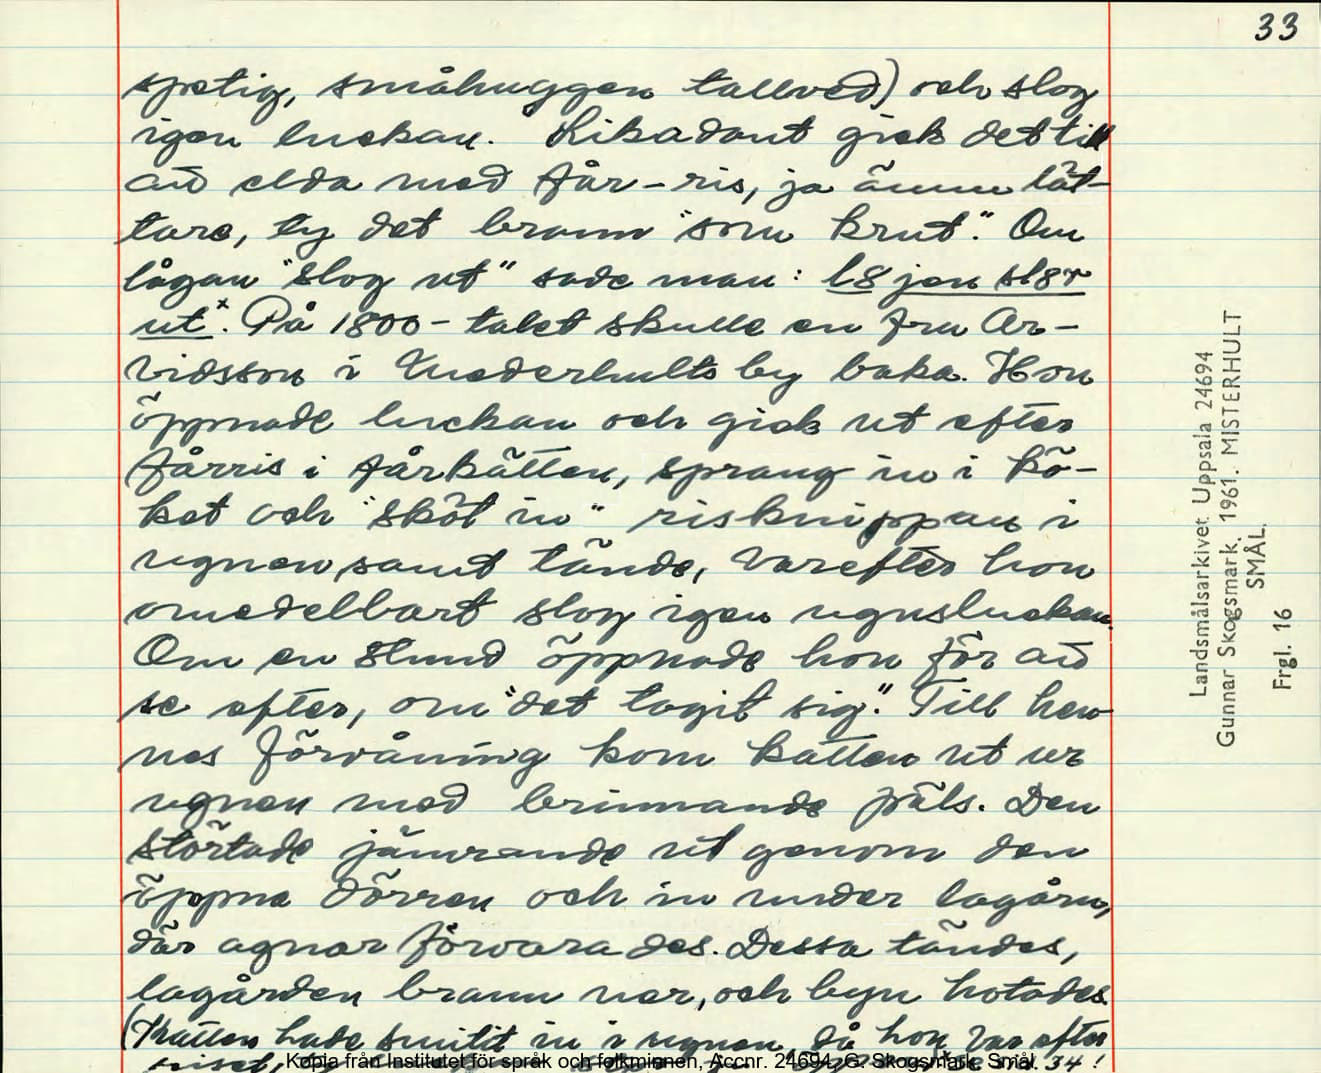 33
spetig, småhuggen tallved) och slog
igen luckan. Likadant gick det till
att elda med får-ris, ja ännu lät-
tare, ty det brann "som krut". Om
lågan "slog ut" sade man: l8jen sl8r
ut x. På 1800-talet skulle en fru Ar-
vidsson i Mederhults by baka. Hon
öppnade luckan och gick ut efter
fårris i fårkätten, sprang in i kö-
ket och "sköt in" risknippan i
ugnen samt tände, varefter hon
omedelbart slog igen ugnsluckan.
Om en stund öppnade hon för att
se efter, om "det tagit sig". Till hen-
nes förvåning kom katten ut ur
ugnen med brinnande päls. Den
störtade jämrande ut genom den
öppna dörren och in under lagårn,
där agnar förvarades. Dessa tändes,
lagården brann ner, och byn hotades.
(Katten hade smitit in i ugnen, då hon var efter
riset, 34!
Landsmålsarkivet Uppsala 24694
Gunnar Skogsmark. 1961. MISTERHULT
SMÅL.
Frgl. 16
Kopia från Institutet för språk och folkminnen, Accnr. 24694, G. Skogsmark, Smål.